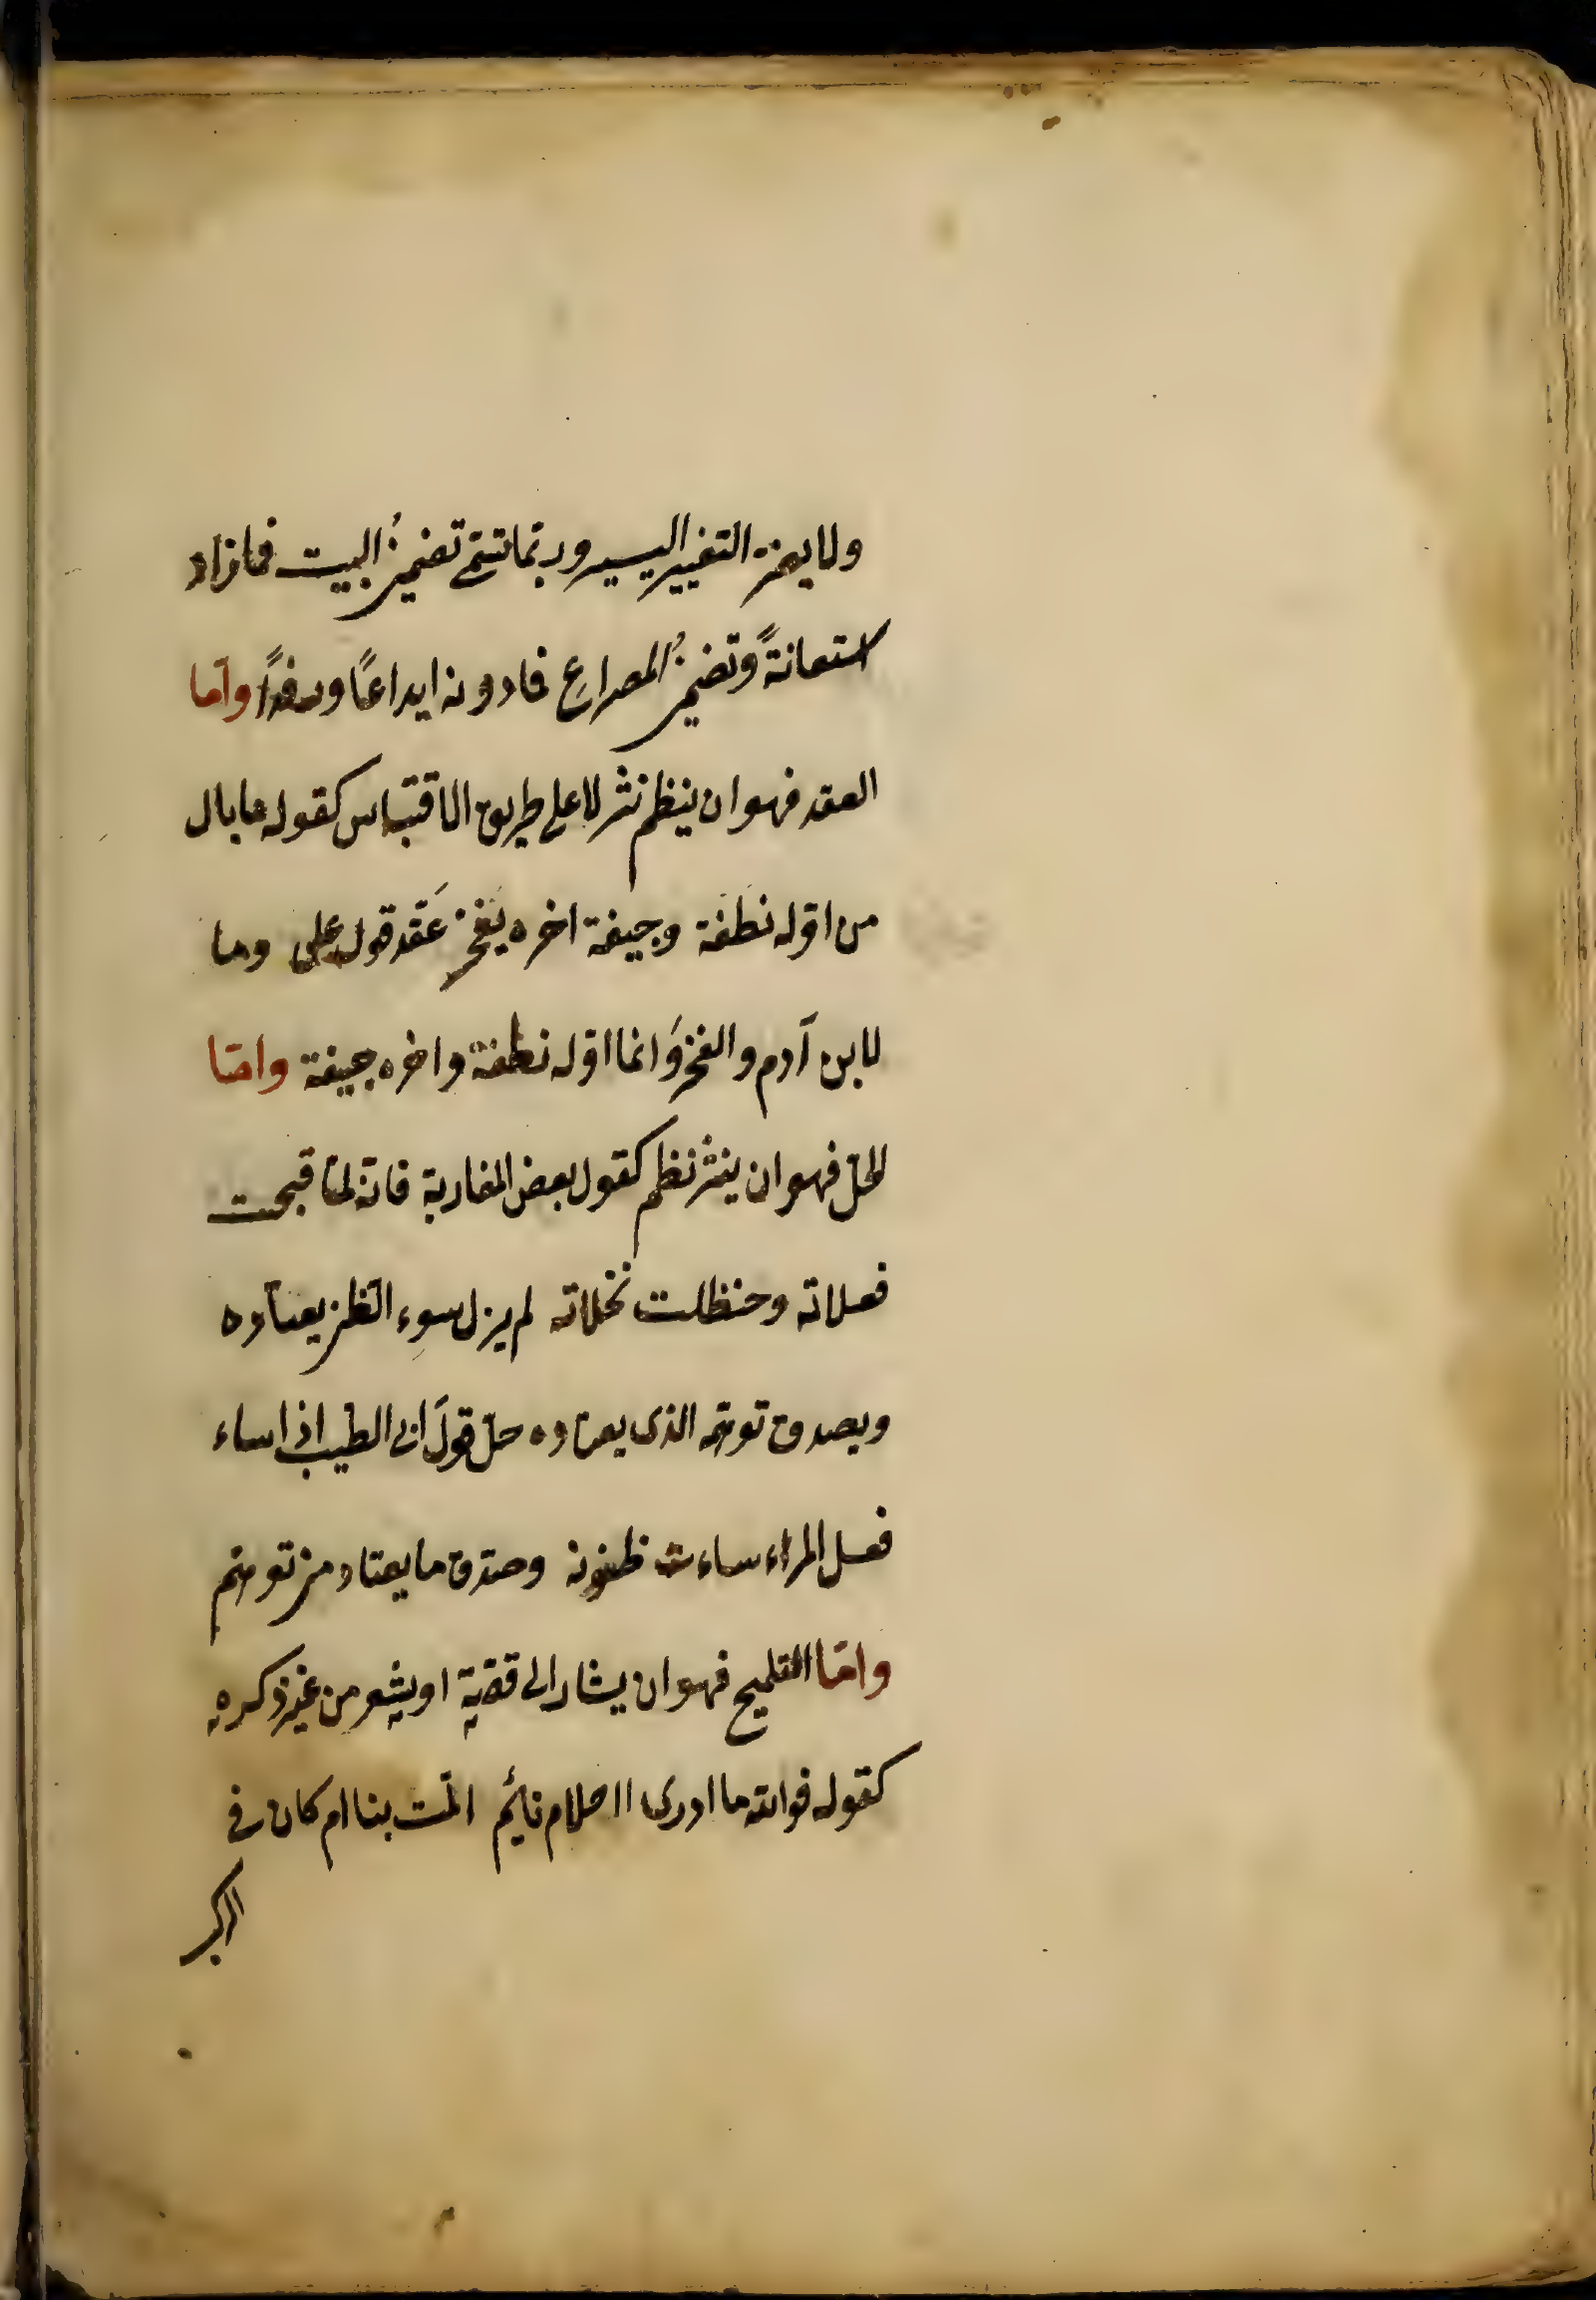 ولا يضر التغيير اليسير وربّما تسمّى تضمينُ البيت فما زاد
استعانةً وتضمينُ المصراعِ فما دونه ايداعًا ورفوًا وامّا
العقد فهو ان ينظم نثر لا على طريق الاقتباس كقوله ما بال
من اوّله نطفة وجيفة اخره يفخر عَقَد قول على وما
لابن آدم والفخر وَانما اوّله نطفة واخره جيفة وامّا
الحلّ فهو ان ينثر نظم كقول بعض المغاربة فانّه لمّا قبحت
فعلاته وحنظلت نخلاته لم يزل سوء الظّن يعتاده
ويصدق توهّمه الذى يعتاده حلّ قولَ ابى الطيب اذا ساء
فعل المراء ساءت ظنونه وصدّق ما يعتاد من توهّم
وامّا التلميح فهو ان يشار الى قصّة او شعر من غير ذكره
كقوله فوالله ما ادرى ااحلام نائم المّت بنا ام كان فى
الركب